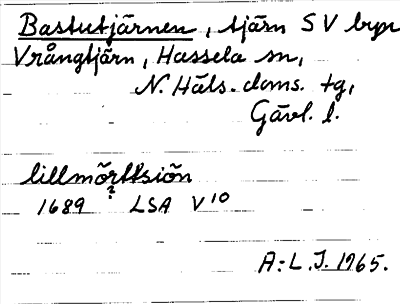 Bastutjärnen, tjärn SV byn
Vrångtjärn, Hassela sn,
N. Häls. doms. tg,
Gävl. l.
lillmörttsiön
?
1689 LSA V10
A: L. J. 1965.